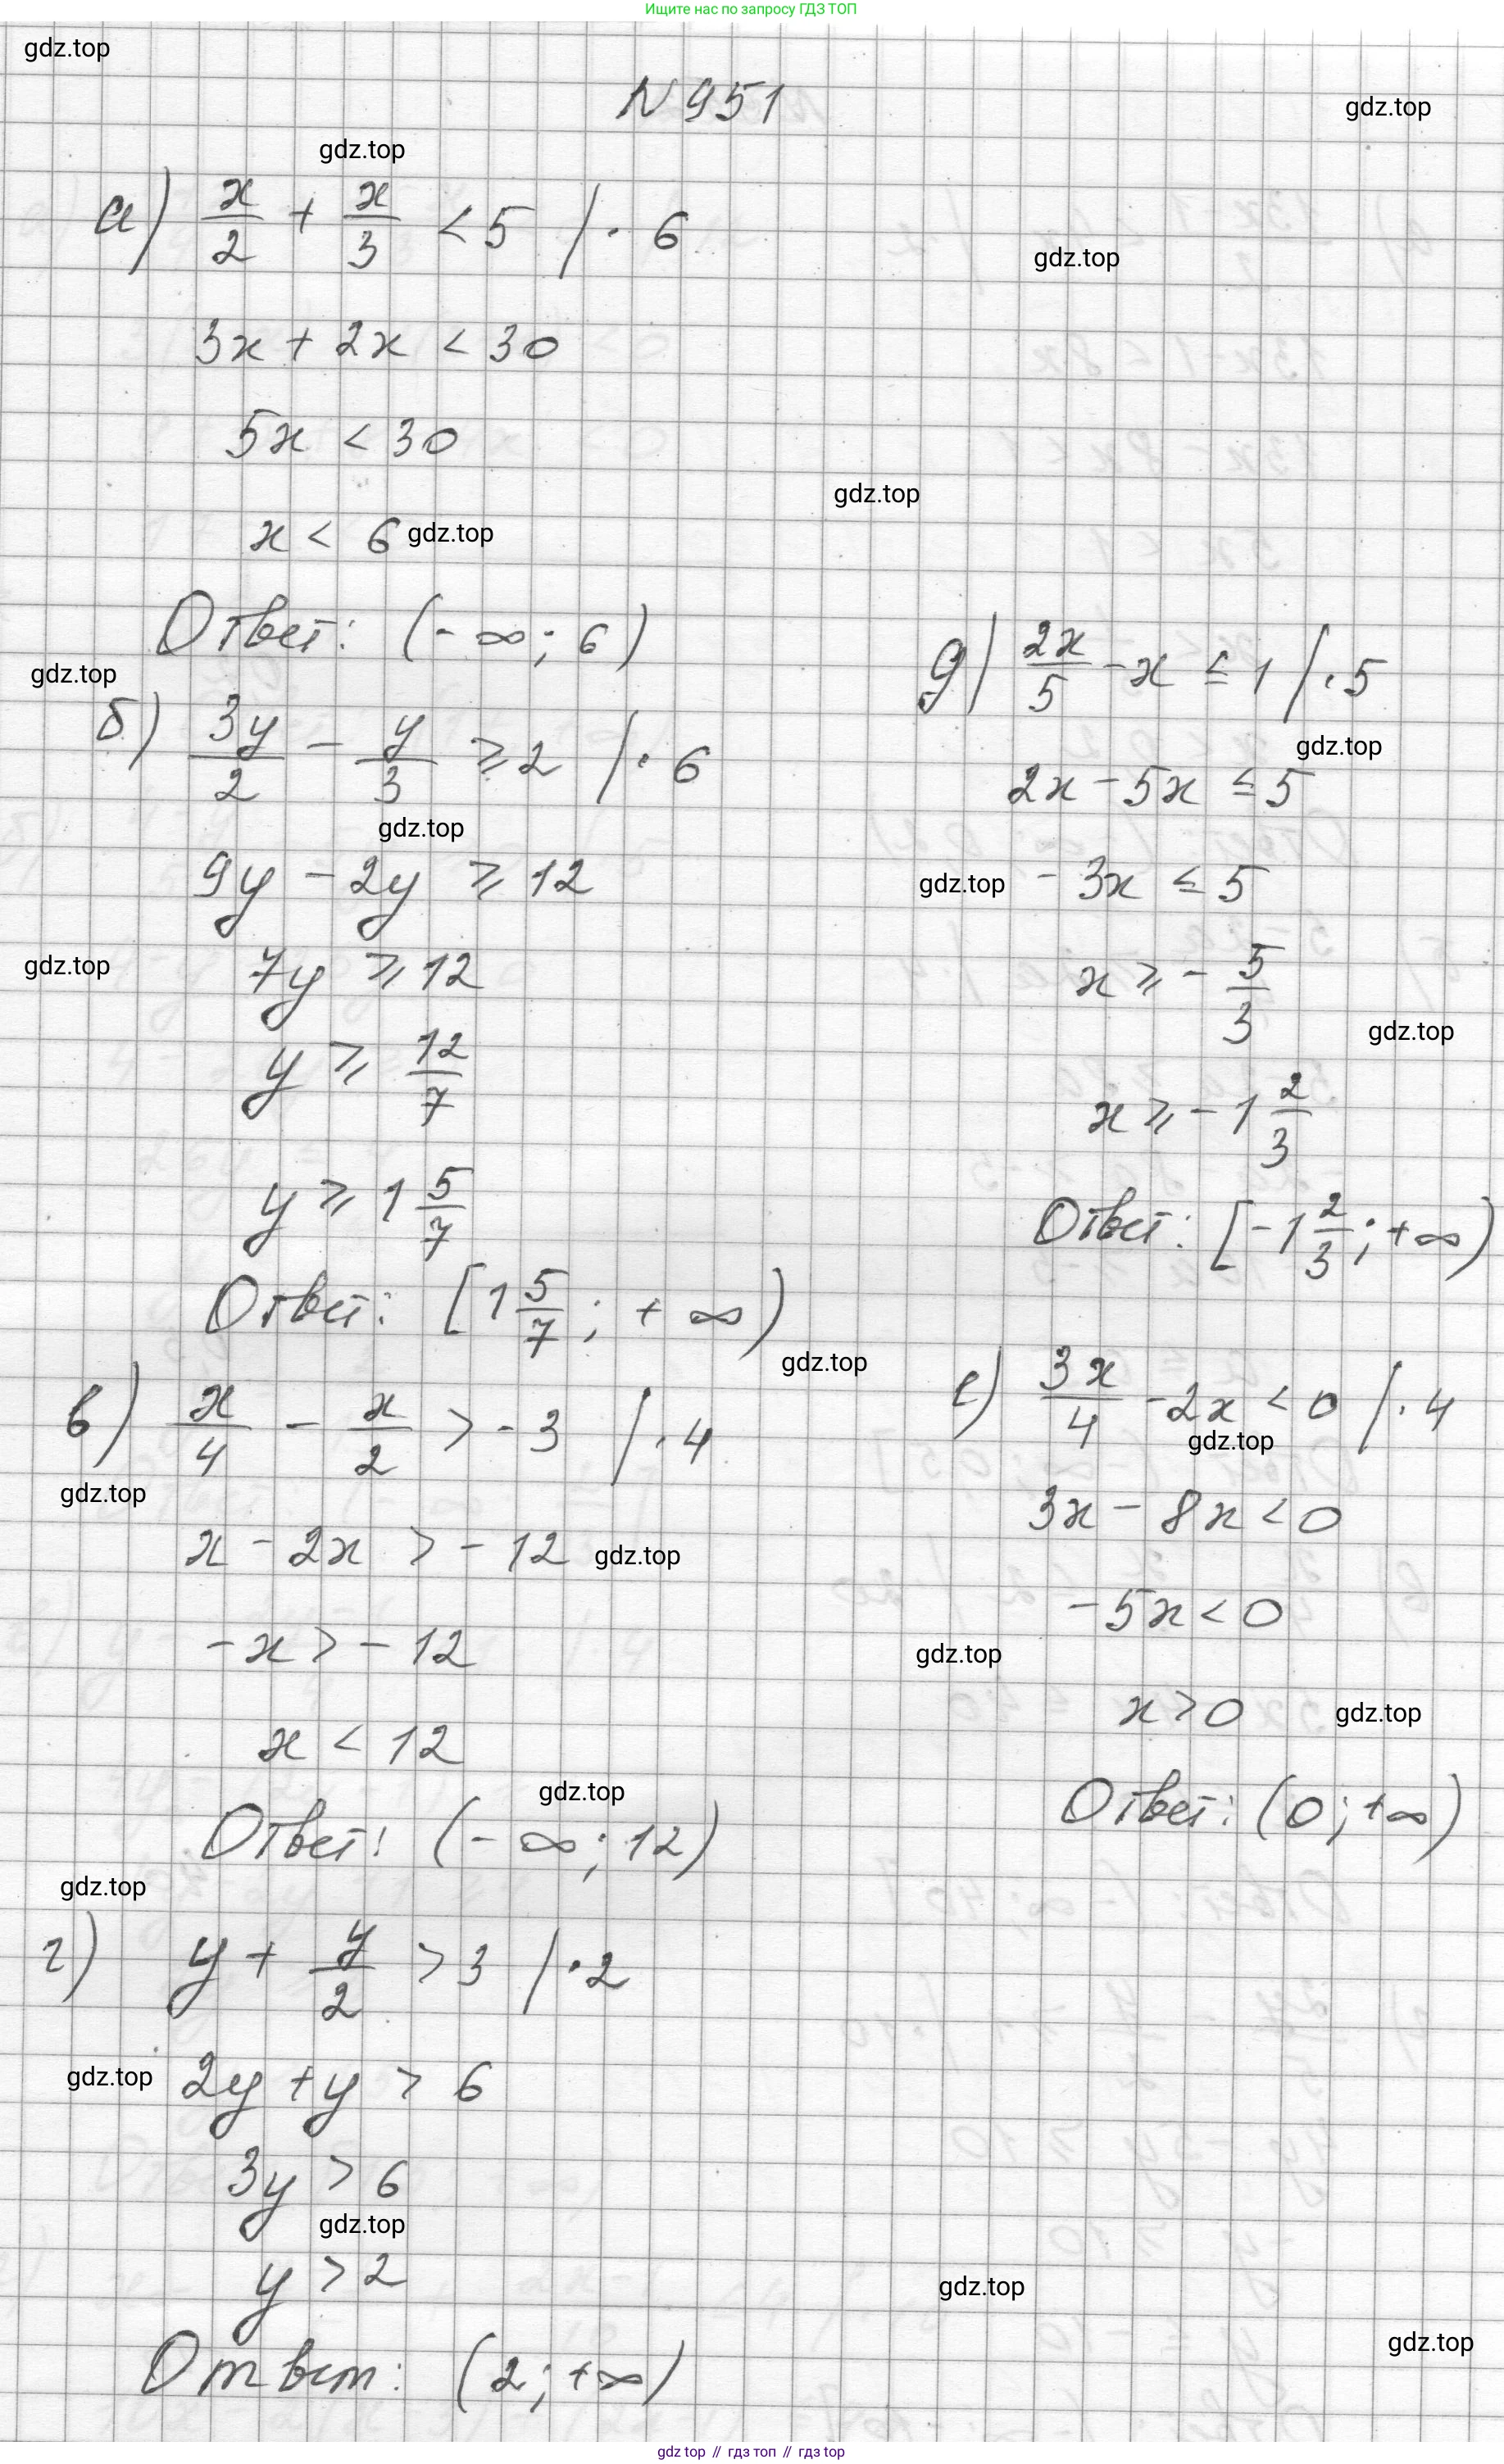 Ищите нас по запросу ГДЗ ТОП
gdz.top
N 951
gdz.top
gdz.top
а) x/2 + x/3 < 5 / · 6
gdz.top
3x + 2x < 30
5x < 30
gdz.top
x < 6 gdz.top
Ответ: (-∞; 6)
gdz.top
б) 3y/2 - y/3 ⩾ 2 / · 6
gdz.top
9y - 2y ⩾ 12
gdz.top
7y ⩾ 12
y ⩾ 12/7
y ⩾ 1 5/7
Ответ: [1 5/7; +∞)
gdz.top
в) x/4 - x/2 > -3 / · 4
gdz.top
x - 2x > -12 gdz.top
-x > -12
x < 12
gdz.top
Ответ: (-∞; 12)
gdz.top
г) y + y/2 > 3 / · 2
gdz.top 2y + y > 6
3y > 6
gdz.top
y > 2
Ответ: (2; +∞)
д) 2x/5 - x ≤ 1 / · 5
gdz.top
2x - 5x ≤ 5
gdz.top -3x ≤ 5
x ⩾ - 5/3
gdz.top
x ⩾ -1 2/3
Ответ: [-1 2/3; +∞)
е) 3x/4 - 2x < 0 / · 4
gdz.top
3x - 8x < 0
-5x < 0
gdz.top
x > 0 gdz.top
Ответ: (0; +∞)
gdz.top
gdz.top
gdz top // гдз топ // гдз top